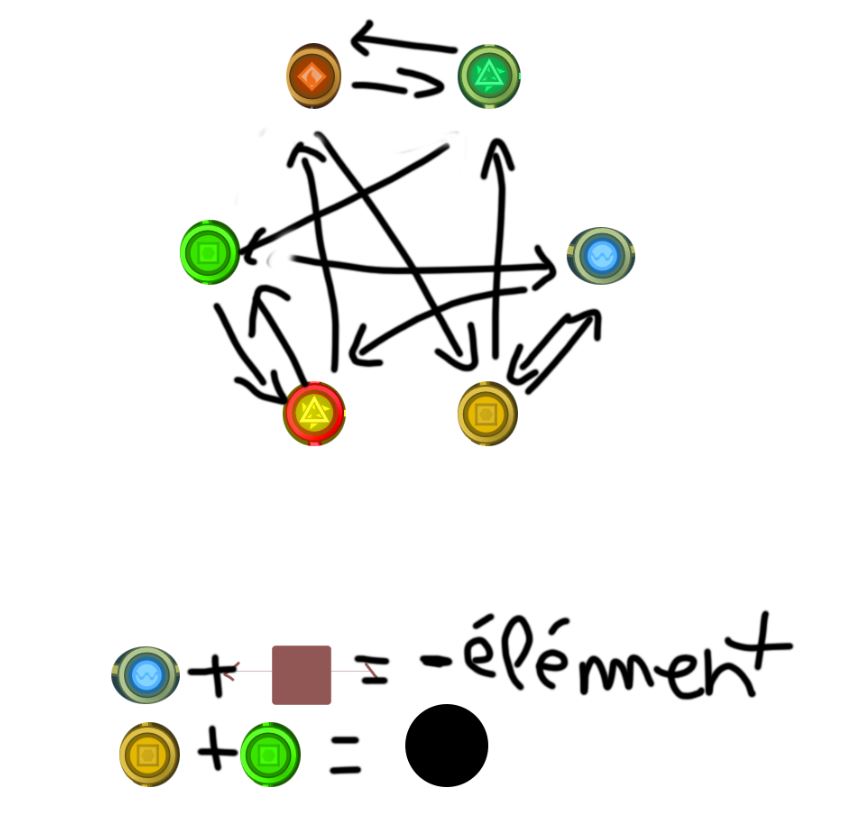 + = - élément
+ =